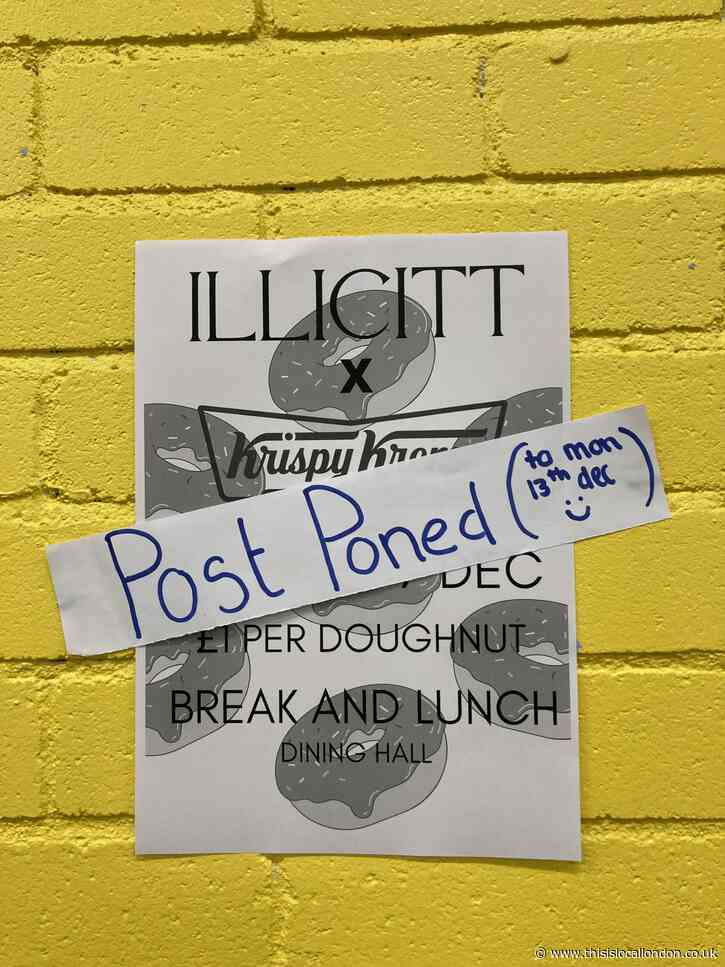 ILLICITT
X
Krispy Kreme
Post Poned (to mon
13th dec
DEC
£1 PER DOUGHNUT
BREAK AND LUNCH
DINING HALL
© www.thisislocallondon.co.uk